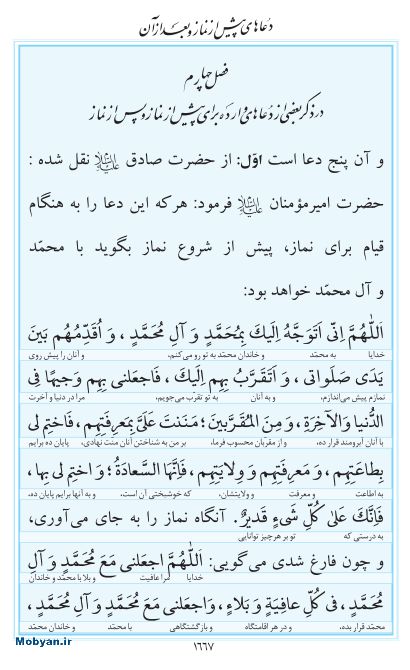 دعاهای پیش از نماز و بعد از آن
فصل چهارم
در ذکر بعضی از دعاهای وارده برای پیش از نماز و پس از نماز
و آن پنج دعا است اوّل: از حضرت صادق علیه‌السلام نقل شده :
حضرت امیرمؤمنان علیه‌السلام فرمود: هرکه این دعا را به هنگام
قیام برای نماز، پیش از شروع نماز بگوید با محمّد
و آل محمّد خواهد بود:
اَللّٰهُمَّ اِنّی اَتَوَجَّهُ اِلَیکَ بِمُحَمَّدٍ وَ آلِ مُحَمَّدٍ ، وَ اُقَدِّمُهُم بَینَ
خدایا به محمّد و خاندان محمّد به تو رو می‌کنم، و آنان را پیش روی
یَدَی صَلَواتی ، وَ اَتَقَرَّبُ بِهِم اِلَیکَ ، فَاجعَلنی بِهِم وَجیهًا فِی
نمازم پیش می‌اندازم، و به آنان به تو تقرّب می‌جویم، مرا در دنیا و آخرت
الدُّنیا وَالآخِرَةِ، وَ مِنَ المُقَرَّبینَ؛ مَنَنتَ عَلَیَّ بِمَعرِفَتِهِم، فَاختِم لی
با آنان آبرومند قرار ده، و از مقربان محسوب فرما، بر من به شناختن آنان منت نهادی، پایان ده برایم
بِطاعَتِهِم ، وَ مَعرِفَتِهِم وَ وِلایَتِهِم، فَاِنَّهَا السَّعادَةُ؛ وَ اختِم لی بِها،
به اطاعت و معرفت و ولایتشان، که خوشبختی آن است. و به آنها برایم پایان ده،
فَاِنَّکَ عَلیٰ کُلِّ شَیءٍ قَدیرٌ. آنگاه نماز را به جای می‌آوری،
به درستی که تو بر هر چیز توانایی
و چون فارغ شدی می‌گویی: اَللّٰهُمَّ اجعَلنی مَعَ مُحَمَّدٍ وَ آلِ
خدایا مرا با محمّد و خاندان
مُحَمَّدٍ ، فی کُلِّ عافِیَةٍ وَ بَلاءٍ ، وَاجعَلنی مَعَ مُحَمَّدٍ وَ آلِ مُحَمَّدٍ ،
محمّد قرار بده. و در هر اقامتگاه و بازگشتگاهی با محمّد و خاندان محمّد
۱۶۶۷
Mobyan.ir